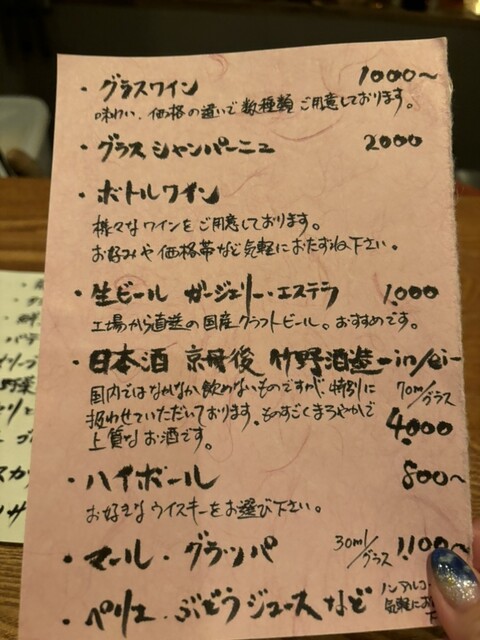 ・グラスワイン 1000〜
味わい、価格の違いで数種類ご用意しております。
・グラスシャンパーニュ 2000
・ボトルワイン
様々なワインをご用意しております。
お好みや価格帯など気軽におたずね下さい。
・生ビール ガージェリー・エステラ 1,000
工場から直送の国産クラフトビール。おすすめです。
・日本酒 京丹後 竹野酒造
国内ではなかなか飲めないものですが、特別に 70ml/グラス
扱わせていただいております。ものすごくまろやかで 4,000
上質なお酒です。
・ハイボール 800〜
お好きなウイスキーをお選び下さい。
・マール・グラッパ 30ml/グラス 1,100〜
・ペリエ・ぶどうジュースなど ノンアルコ
気軽にお